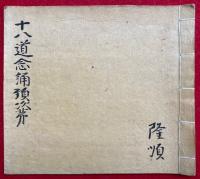 十八道念誦次第
隆順